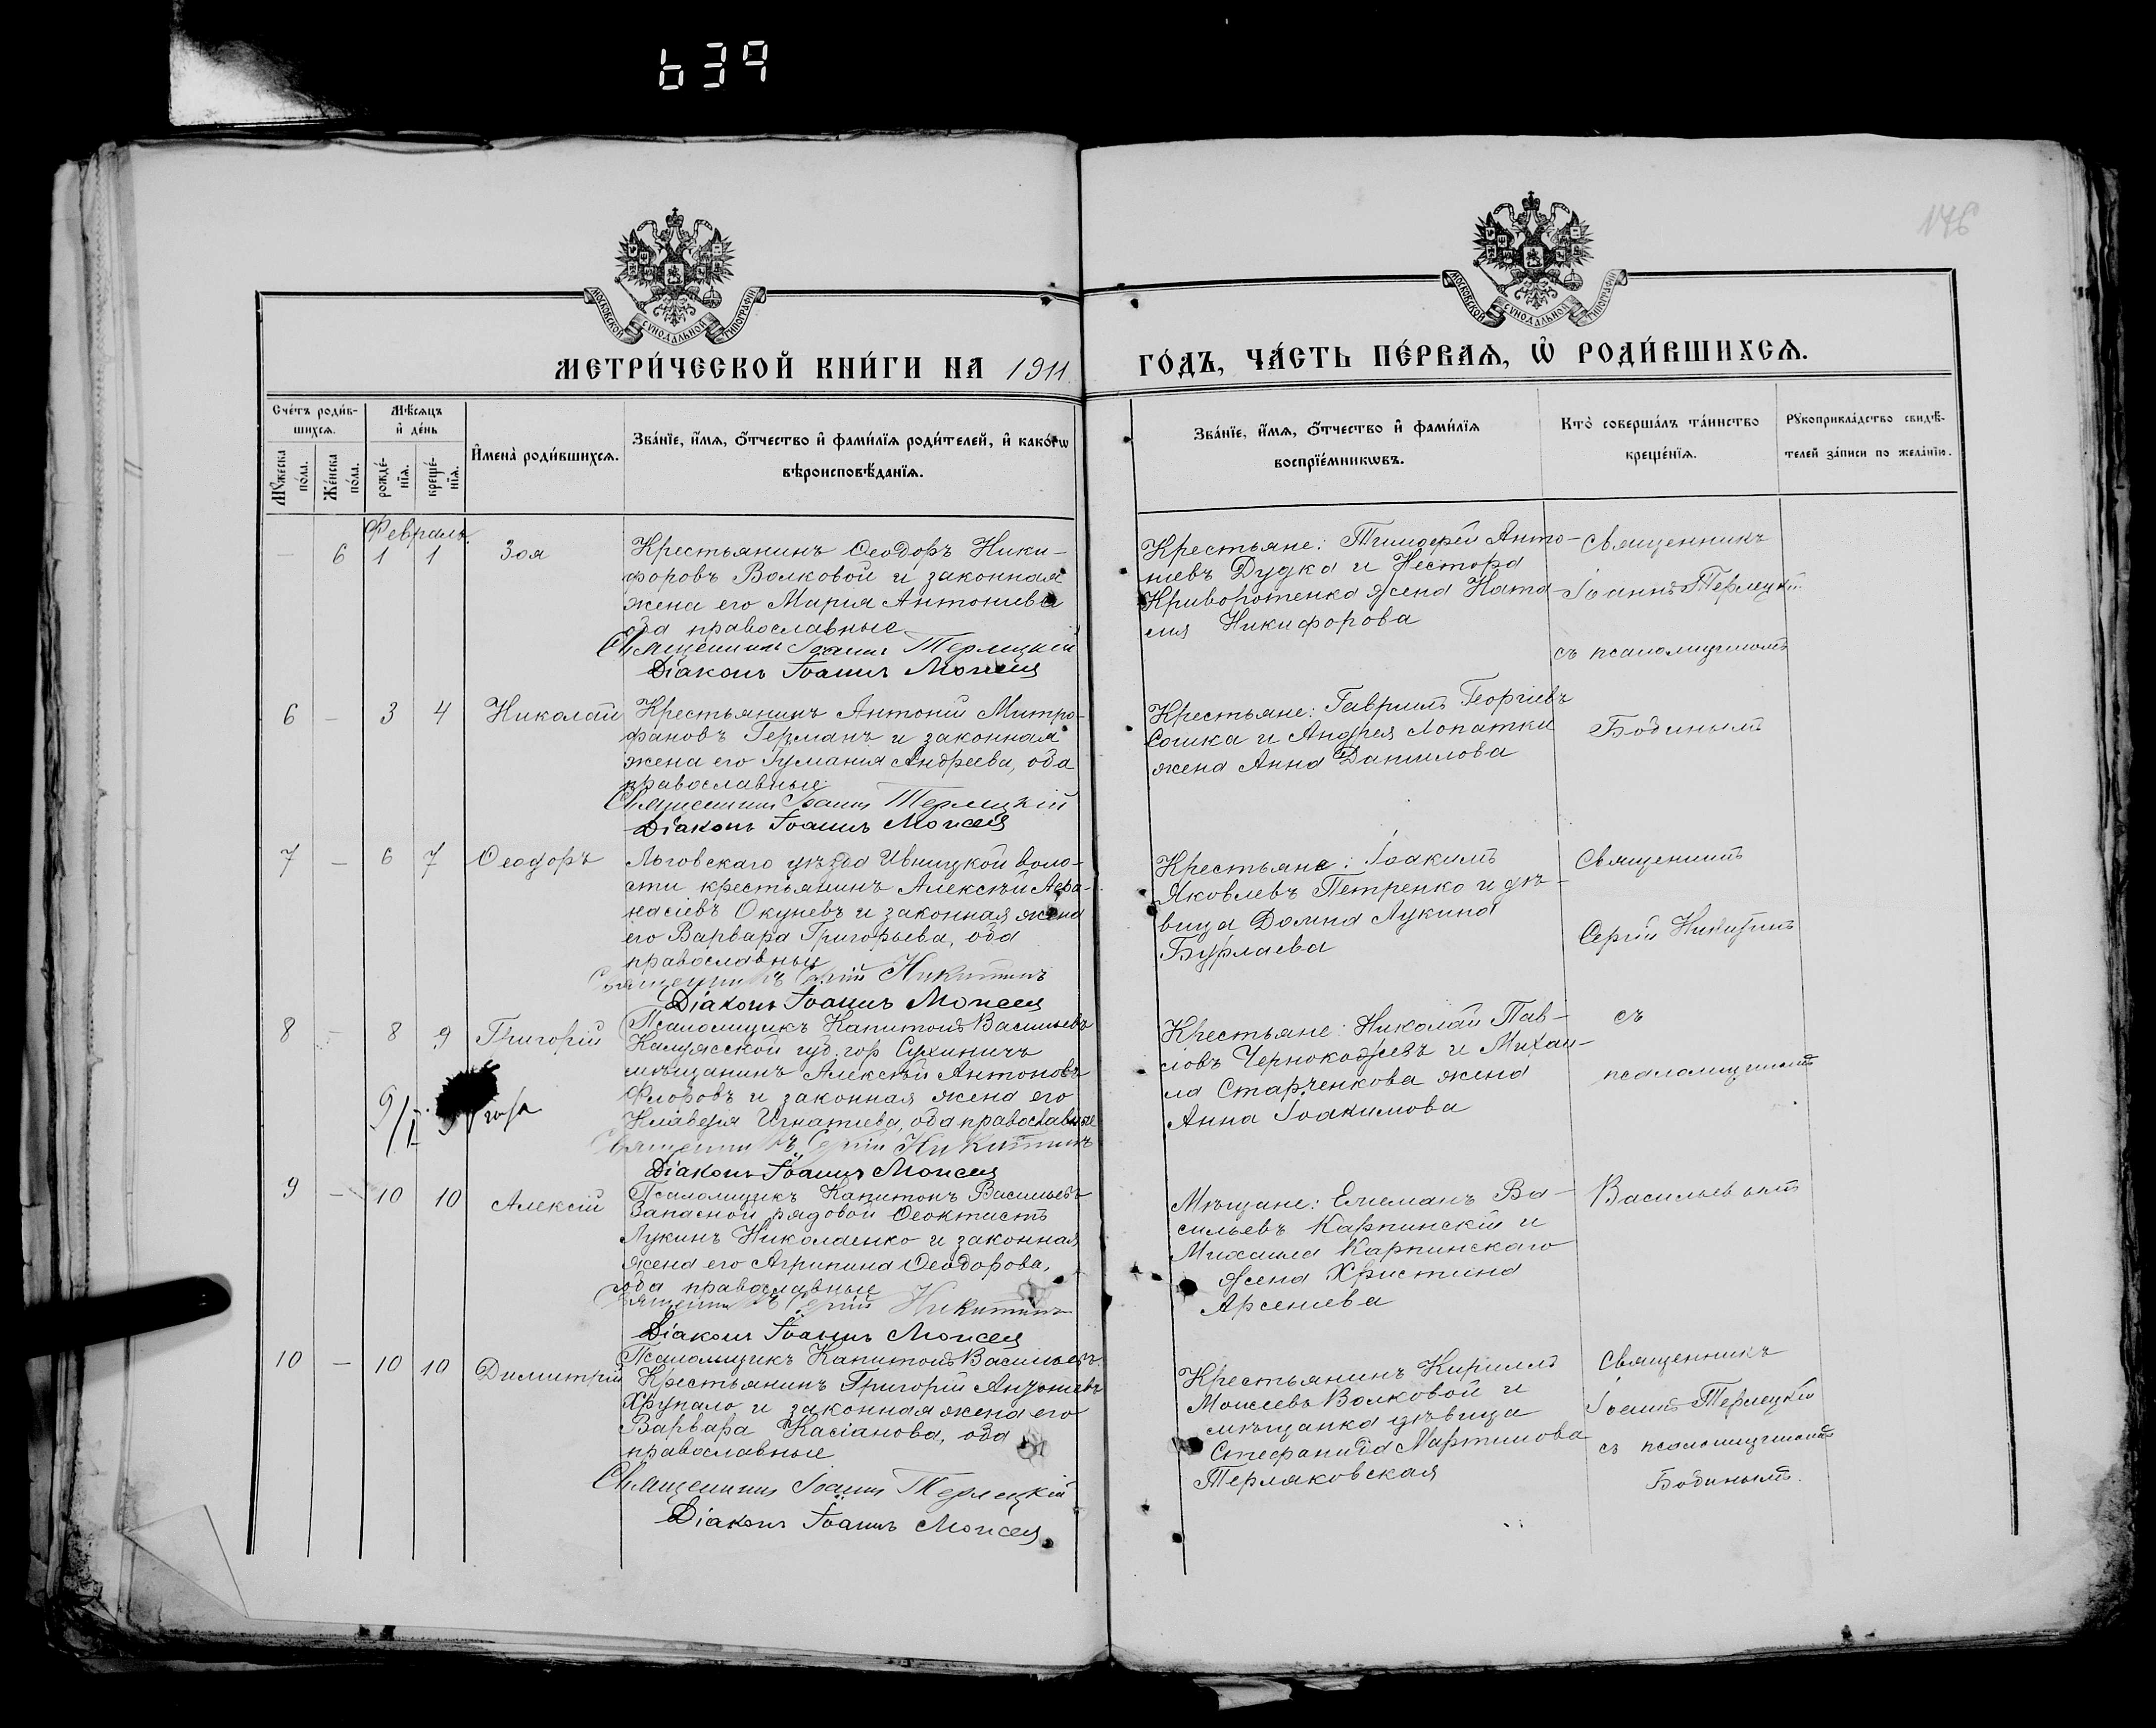 639
176
МОСКОВСКОЙ СѴНОДАЛЬНОЙ ТИПОГРАФІИ
МОСКОВСКОЙ СѴНОДАЛЬНОЙ ТИПОГРАФІИ
МЕТРИ́ЧЕСКОЙ КНИ́ГИ НА 1911 ГО́ДЪ, ЧА́СТЬ ПЕ́РВАѦ, Ѽ РОДИ́ВШИХСѦ.
Сче́тъ роди́в-
шихсѧ.
Мꙋ́жеска
по́ла.
Же́нска
по́ла.
Мѣ́сѧцъ
и҆ де́нь
рожде́-
нїѧ.
креще́-
нїѧ.
И҆мена̀ роди́вшихсѧ.
Зва́нїе, и҆́мѧ, ѻ҆́тчество и҆ фами́лїѧ роди́телей, и҆ како́гѡ
вѣроисповѣ́данїѧ.
Зва́нїе, и҆́мѧ, ѻ҆́тчество и҆ фами́лїѧ
воспрїе́мникѡвъ.
Кто̀ соверша́лъ та́инство
креще́нїѧ.
Рꙋкоприкла́дство свидѣ́-
телей за́писи по жела́нїю.
Февраль.
— 6 1 1 Зоя
Крестьянинъ Ѳеодоръ Ники-
форовъ Волковой и законная
жена его Марія Антоніева
оба православные
Священникъ Іоаннъ Терлецкій
Діаконъ Іоаннъ Моисея
Крестьяне: Тимоѳей Анто-
ніевъ Дудка и Нестора
Криворотенка жена Ната-
лія Никифорова
Священникъ
Іоаннъ Терлецкій
съ псаломщикомъ
6 — 3 4 Николай
Крестьянинъ Антоній Митро-
фановъ Германъ и законная
жена его Іуліанія Андреева, оба
православные
Священникъ Іоаннъ Терлецкій
Діаконъ Іоаннъ Моисея
Крестьяне: Гавріилъ Георгіевъ
Сошка и Андрея Лопатки
жена Анна Даниилова
Бодинымъ
7 — 6 7 Ѳеодоръ
Льговскаго уѣзда Ивницкой воло-
сти крестьянинъ Алексѣй Аѳа-
насіевъ Окуневъ и законная жена
его Варвара Григорьева, оба
православные
Священникъ Сергій Никитинъ
Діаконъ Іоаннъ Моисея
Псаломщикъ Капитонъ Васильевъ
Крестьяне: Іоакимъ
Яковлевъ Петренко и дѣ-
вица Домна Лукина
Бурлаева
Священникъ
Сергій Никитинъ
8 — 8 9 Григорій
9/II
Калужской губ. гор. Сухиничъ
мѣщанинъ Алексѣй Антоновъ
Флоровъ и законная жена его
Клавдія Игнатіева, оба православные
Священникъ Сергій Никитинъ
Діаконъ Іоаннъ Моисея
Псаломщикъ Капитонъ Васильевъ
Крестьяне: Николай Пав-
ловъ и Михаи-
ла Старченкова жена
Анна Іоакимова
съ
псаломщикомъ
9 — 10 10 Алексій
Запасной рядовой Ѳеоктистъ
Лукинъ Николаенко и законная
жена его Агрипина Ѳеодорова,
оба православные
Священникъ Сергій Никитинъ
Діаконъ Іоаннъ Моисея
Псаломщикъ Капитонъ Васильевъ.
Мѣщане: Ва-
сильевъ Карпинскій и
Михаила Карпинскаго
жена Христина
Арсеніева
Васильевымъ
10 — 10 10 Димитрій
Крестьянинъ Григорій Антоніевъ
Хрупало и законная жена его
Варвара Касіанова, оба
православные
Священникъ Іоаннъ Терлецкій
Діаконъ Іоаннъ Моисея
Крестьянинъ Кириллъ
Моисеевъ Волковой и
мѣщанка дѣвица
Стефанида Мартинова
Терляковская
Священникъ
Іоаннъ Терлецкій
съ псаломщикомъ
Бодинымъ.